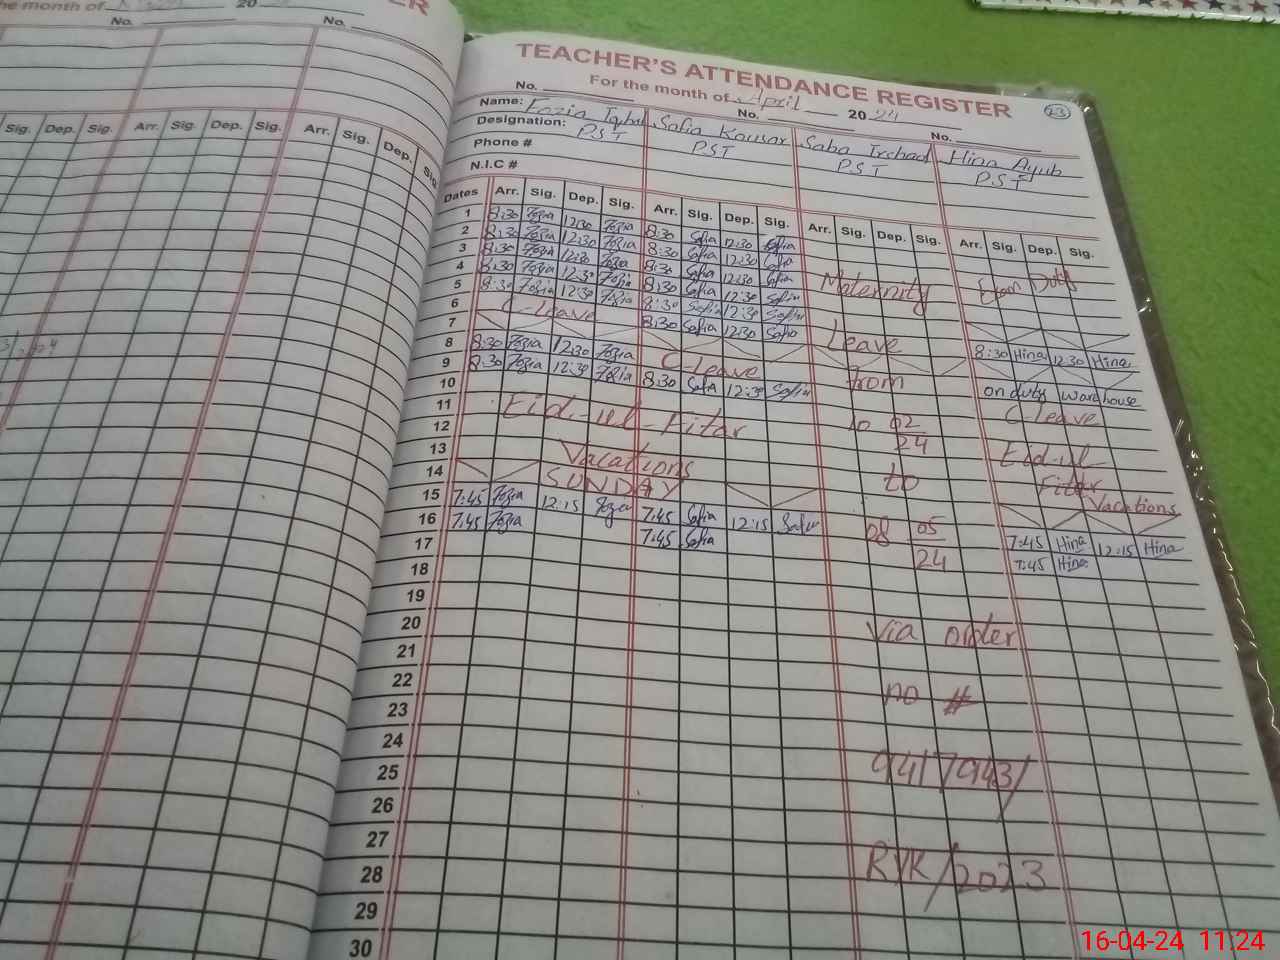 he month of
20
No.
No.
Sig. Dep. Sig. Arr. Sig. Dep. Sig. Arr. Sig. Dep. Sig.
TEACHER'S ATTENDANCE REGISTER
For the month of April 2024
23
No. No. No.
Name: Fozia Iqbal Safia Kousar Saba Irshad Hina Ayub
Designation: PST PST PST PST
Phone #
N.I.C #
Dates Arr. Sig. Dep. Sig. Arr. Sig. Dep. Sig. Arr. Sig. Dep. Sig. Arr. Sig. Dep. Sig.
1 8:30 Fozia 12:30 Fozia 8:30 Safia 12:30 Safia
2 8:30 Fozia 12:30 Fozia 8:30 Safia 12:30 Safia
3 8:30 Fozia 12:30 Fozia 8:30 Safia 12:30 Safia Maternity Exam Duty
4 8:30 Fozia 12:30 Fozia 8:30 Safia 12:30 Safia
5 8:30 Fozia 12:30 Fozia 8:30 Safia 12:30 Safia
6 C-Leave 8:30 Safia 12:30 Safia Leave 8:30 Hina 12:30 Hina
7
8 8:30 Fozia 12:30 Fozia C-Leave from on duty Warehouse
9 8:30 Fozia 12:30 Fozia 8:30 Safia 12:30 Safia C Leave
10
11 Eid-ul-Fitar 10 02 Eid-ul
12 24 Fitar
13 Vacations to Vacations
14 SUNDAY
15 7:45 Fozia 12:15 Fozia 7:45 Safia 12:15 Safia 08 05 7:45 Hina 12:15 Hina
16 7:45 Fozia 7:45 Safia 24 7:45 Hina
17
18
19
20 Via order
21
22
23 no #
24
25 9417943/
26
27
28 RYK/2023
29
30
16-04-24 11:24